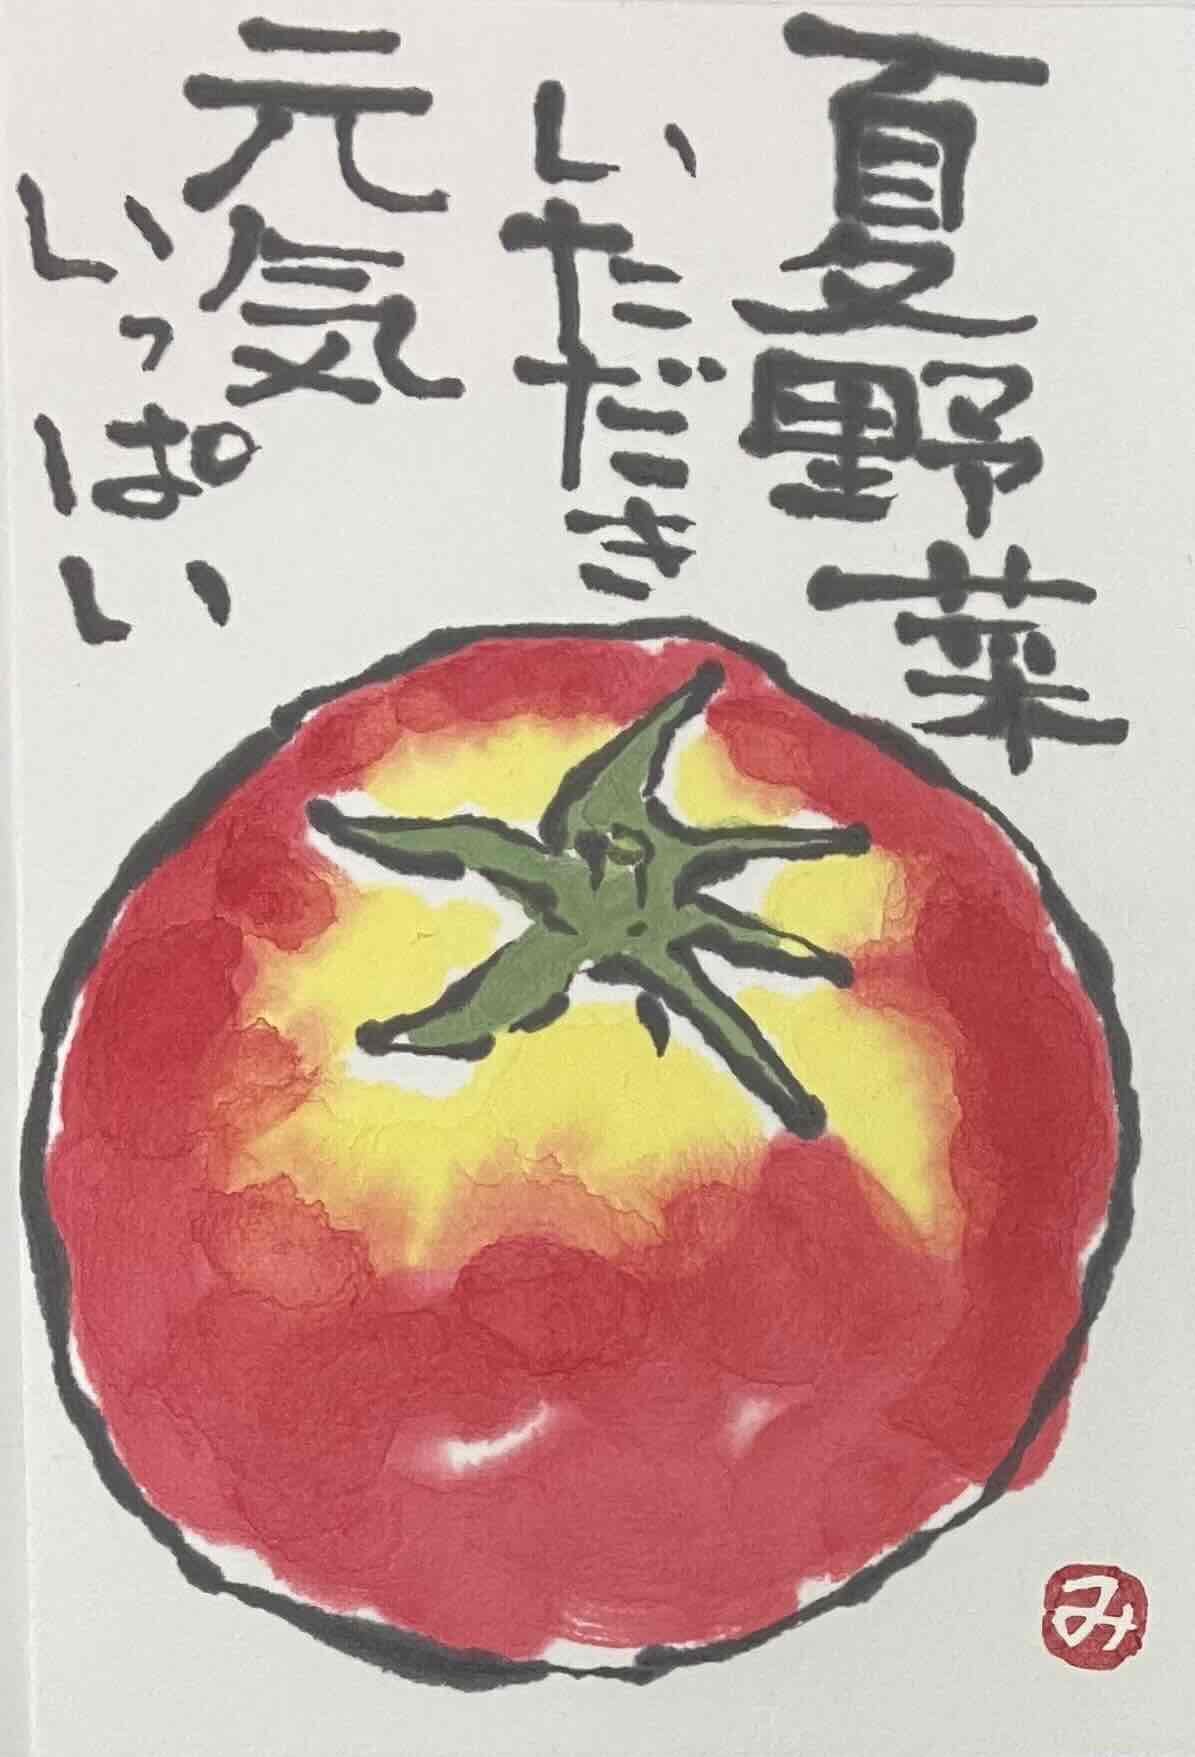 夏野菜
いただき
元気
いっぱい
み